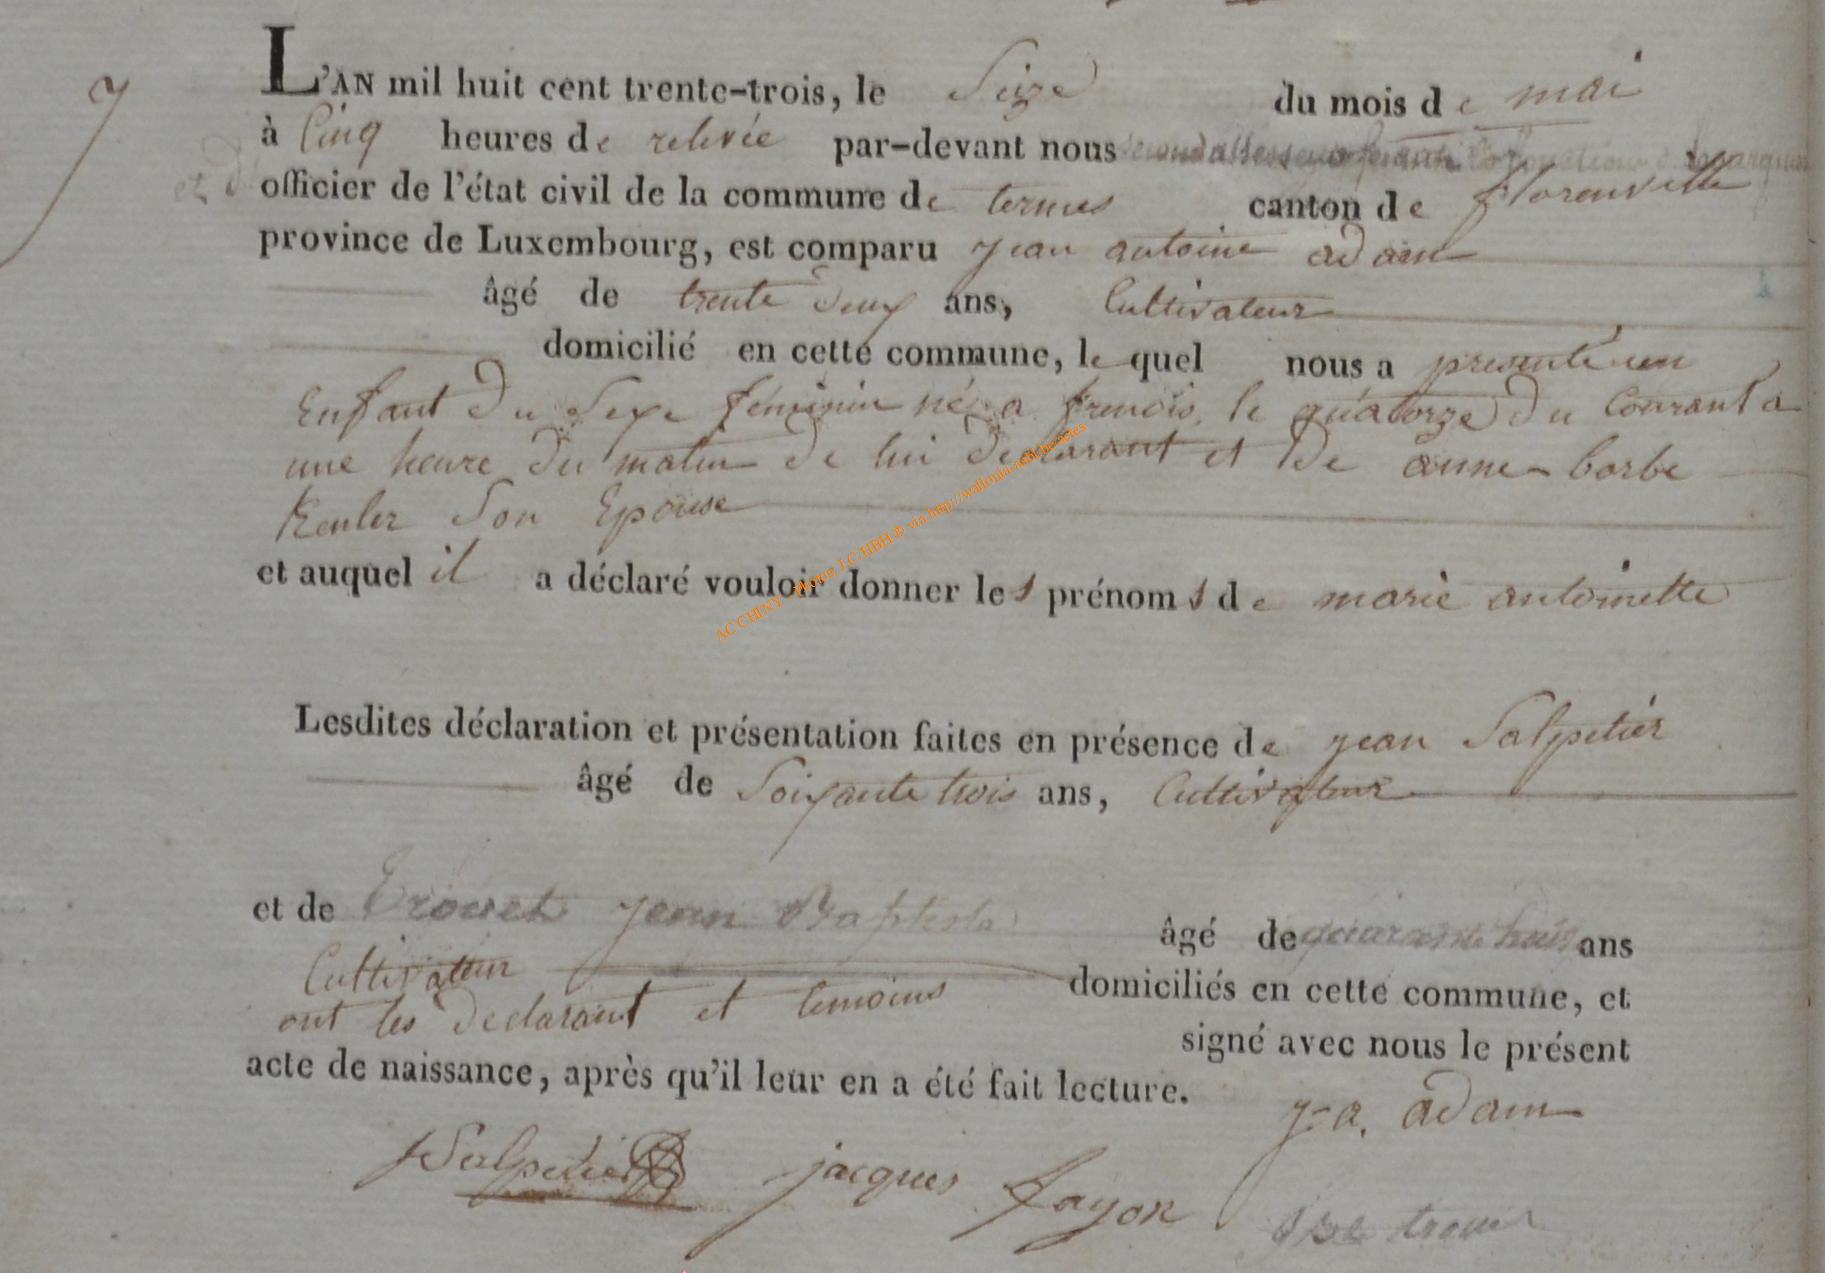 7
L'AN mil huit cent trente-trois, le Seize du mois de mai
à Cinq heures de relevée par-devant nous
et d officier de l'état civil de la commune de termes canton de florenville
province de Luxembourg, est comparu jean antoine adam
âgé de trente deux ans, Cultivateur
domicilié en cette commune, le quel nous a presenté un
Enfant du Sexe féminin né a frenois, le quatorze du Courant a
une heure du matin de lui declarant et de anne-barbe
son Epouse
et auquel il a déclaré vouloir donner les prénoms de marie antoinette
Lesdites déclaration et présentation faites en présence de jean Salpetier
âgé de Soixante trois ans, Cultivateur
et de Trouet jean Baptiste âgé de quarante huit ans
Cultivateur domiciliés en cette commune, et
ont les declarant et temoins signé avec nous le présent
acte de naissance, après qu'il leur en a été fait lecture.
j-a. adam
Salpetier jacques fayon
trouet
AC CHINY
via http://wallonia-asbl.be/actes